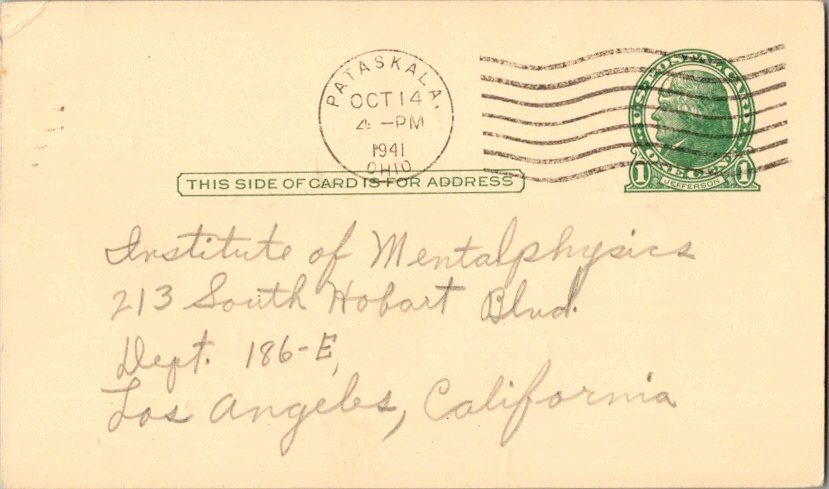 PATASKALA,
OCT 14
4 -PM
1941
OHIO
U.S. POSTAL CARD
ONE CENT
1 JEFFERSON 1
THIS SIDE OF CARD IS FOR ADDRESS
Institute of Mentalphysics
213 South Hobart Blvd.
Dept. 186-E,
Los Angeles, California